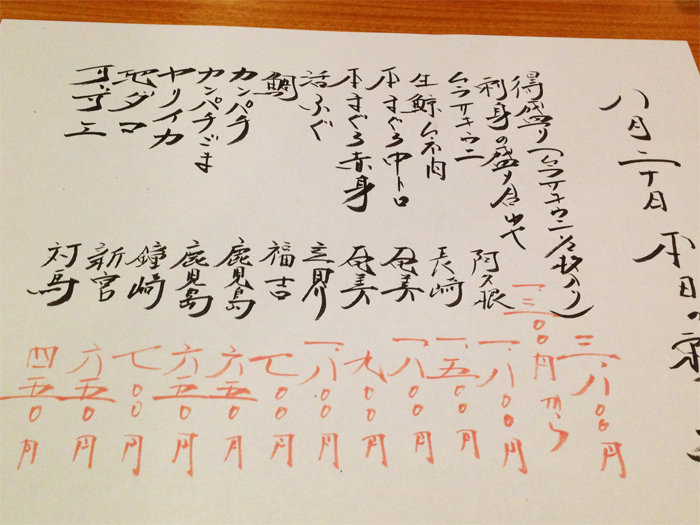 八月二十日 本日の
得盛り(ムラサキウニ 入り) 三、八〇〇円
刺身の盛り合せ 一三〇〇円から
ムラサキウニ 阿久根 一、八〇〇円
生鯨 肉 長崎 一、五〇〇円
本まぐろ中トロ 奄美 一、八〇〇円
本まぐろ赤身 奄美 九〇〇円
活ふぐ 一、八〇〇円
鯛 福吉 七〇〇円
カンパチ 鹿児島 六五〇円
カンパチごま 鹿児島 六五〇円
ヤリイカ 鐘崎 七〇〇円
地ダコ 新宮 六五〇円
対馬 四五〇円